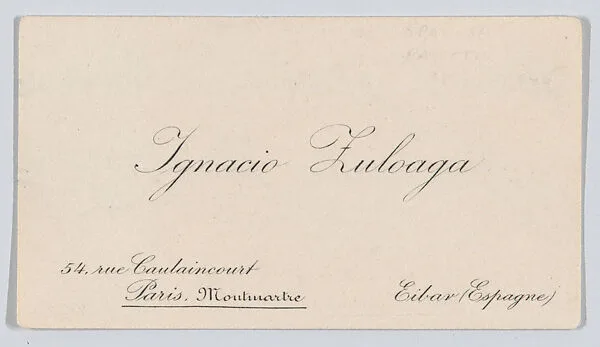 Ignacio Zuloaga
54, rue Caulaincourt
Paris, Montmartre
Eibar (Espagne)